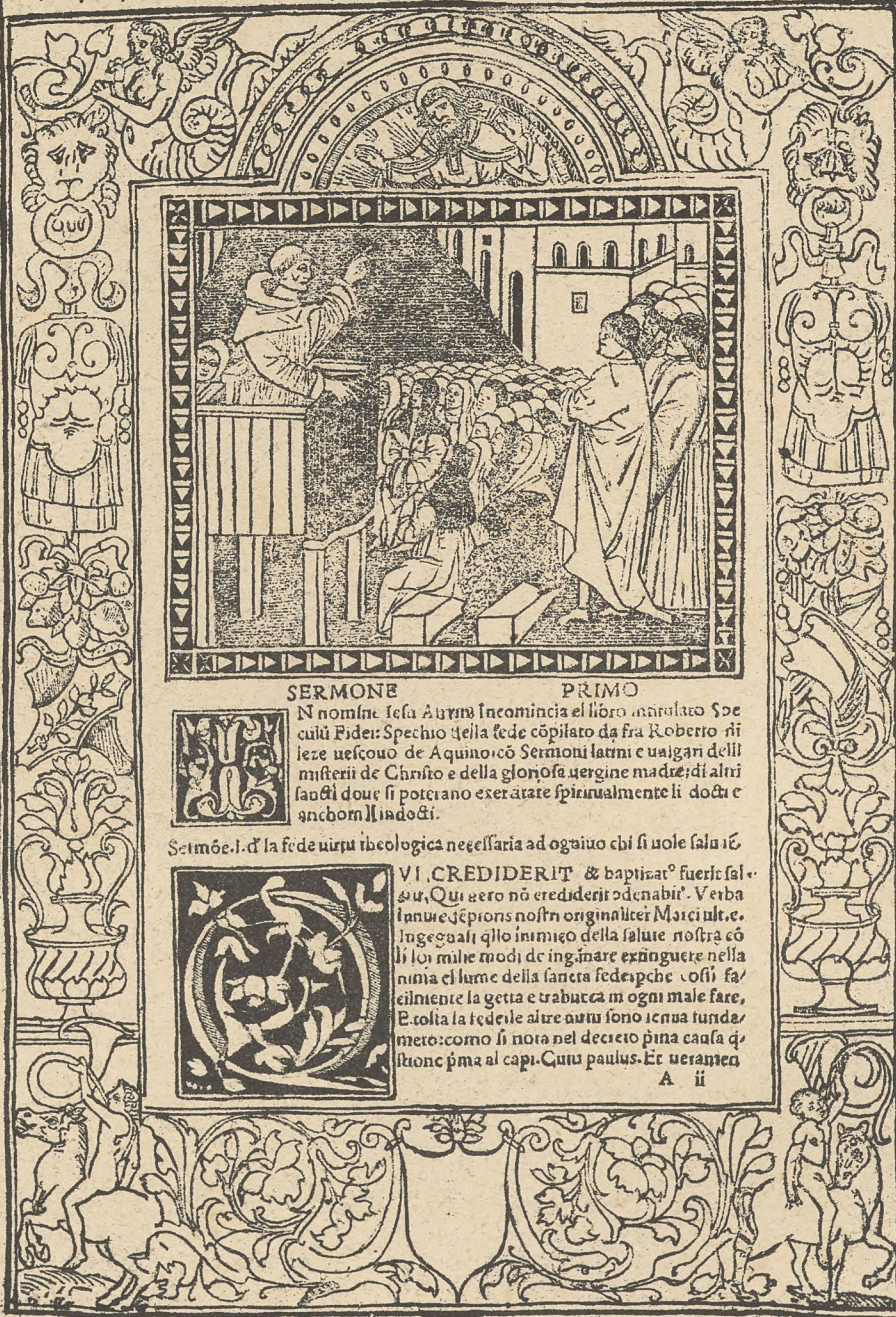 SERMONE PRIMO
N nomine Iesu Incomincia el libro Spe
culũ Fidei: Spechio della fede cõpilato da fra Roberto di
leze uescouo de Aquino:cõ Sermoni latini e uulgari delli
misterii de Christo e della gloriosa uergine madre:di altri
sancti doue si poterano exercitare spiritualmente li docti e
anchom li indocti.
Sermõe.I.d' la fede uirtu theologica necessaria ad ogniuo chi si uole
VI .CREDIDERIT & baptizat⁹ fuerit sal
uero nõ crediderit Verba
nostri originaliter Marci ult.c.
Ingegnasi q̃llo inimico della salute nostra cõ
li soi mille modi de inganare extinguere nella
el lume della sancta fede:pche cosi fa/
cilmente la getta e trabucca in ogni male fare,
E tolta la fede:le altre sono senza funda/
mẽto:como si nota nel decreto p̃ma causa q̃/
stione p̃ma al capi. paulus. Et ueramen
A ii